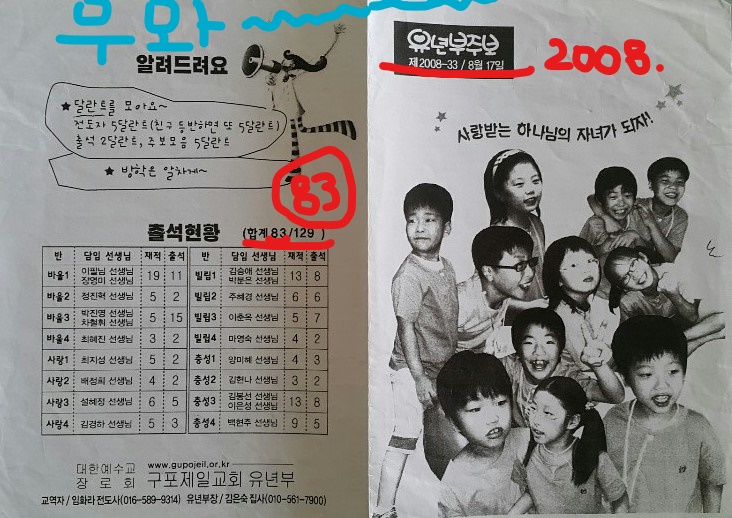 무와
알려드려요
★ 달란트를 모아요~
전도자 5달란트(친구 동반하면 또 5달란트)
출석 2달란트, 주보모음 5달란트
★ 방학은 알차게~
83
출석현황 (합계 83/129)
반 담임 선생님 재적 출석 반 담임 선생님 재적 출석
바울1 이필님 선생님 장영미 선생님 19 11 빌립1 김승애 선생님 박분은 선생님 13 8
바울2 정진혁 선생님 5 2 빌립2 주혜경 선생님 6 6
바울3 박진영 선생님 차철휘 선생님 5 15 빌립3 이춘옥 선생님 5 7
바울4 최혜진 선생님 3 2 빌립4 마영숙 선생님 4 2
사랑1 최지성 선생님 5 2 충성1 양미혜 선생님 4 3
사랑2 배정희 선생님 4 2 충성2 김현나 선생님 3 2
사랑3 설혜정 선생님 6 5 충성3 김몽선 선생님 이은성 선생님 13 8
사랑4 김경하 선생님 5 3 충성4 백현주 선생님 9 5
대한예수교
장로회
www.gupojeil.or.kr
구포제일교회 유년부
교역자 / 임화라 전도사(016-589-9314) 유년부장 / 김은숙 집사(010-561-7900)
유년부주보
제 2008-33 / 8월 17일
2008.
사랑받는 하나님의 자녀가 되자!